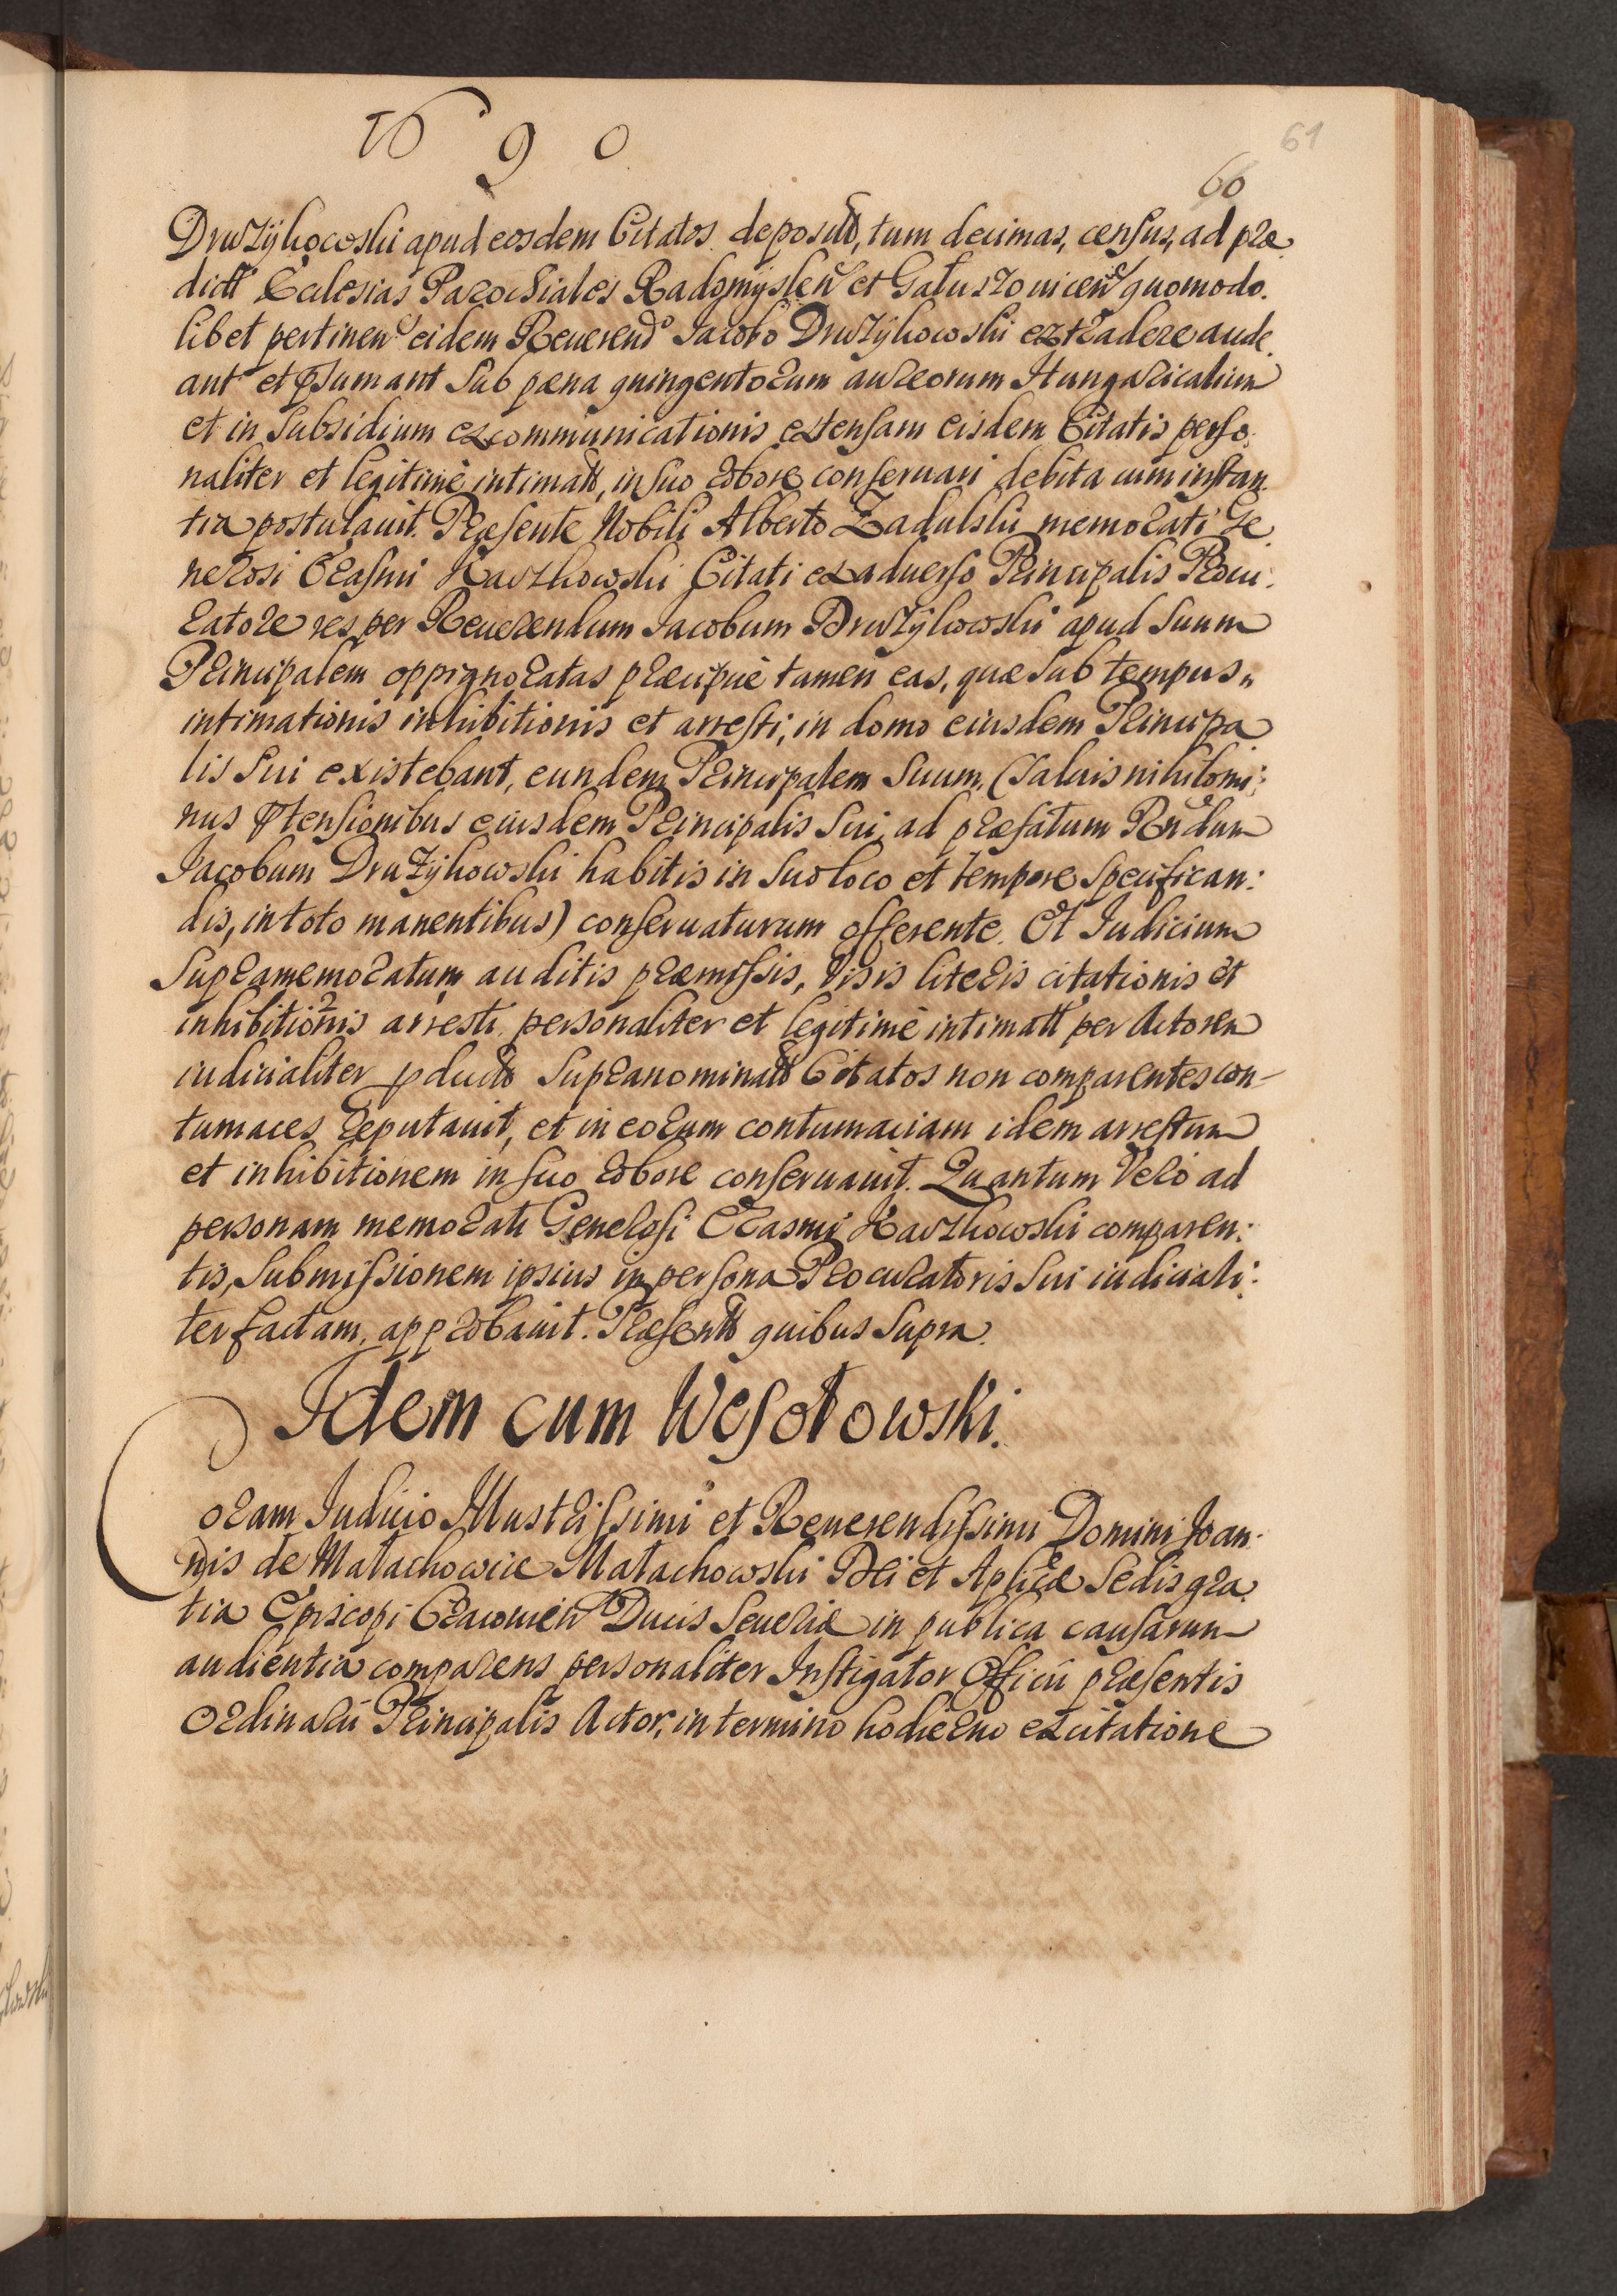 1690
61
60
Drużykowski apud eosdem Citatos deposit͠t, tum decimas, census, ad præ.
dictt Ecclesias Parochiales Radomyslen͠ et Gałuszouicen͠ quomodo.
libet pertinen͠ eidem Reuerendo Jacobo Drużykowski extradere aude.
ant et p͠sumant sub pæna quingentorum aureorum Hungaricalium
et in subsidium excommunicationis extensam eisdem Citatis perso.
naliter et legitimè intimatt, in suo robore conseruari debita cum instan.
tia postulauit. Præsente Nobili Alberto Zadulski memorati Ge.
nerosi Erasmi Karzkowski Citati ex aduerso Principalis Procu.
ratore res per Reuerendum Jacobum Drużykowski apud suum
Principalem oppignoratas præcipuè tamen eas, quæ sub tempus,,
intimationis inhibitionis et arresti, in domo eiusdem Principa
lis sui existebant, eundem Principalem suum, (saluis nihilomi:
nus p͠tensionibus eiusdem Principalis sui, ad præfatum Rn͠dum
Jacobum Drużykowski habitis in suo loco et tempore specifican:
dis, in toto manentibus) conseruaturum offerente. Et Iudicium
supramemoratum auditis præmissis, visis literis citationis et
inhibitionis arresti personaliter et legitimè intimatt per Actorem
iudicialiter p̱ductt supranominatt Citatos non comparentes con-
tumaces reputauit, et in eorum contumaciam idem arrestum
et inhibitionem in suo robore conseruauit. Quantum verò ad
personam memorati Generosi Erasmi Karzkowski comparen:
tis, submissionem ipsius in persona Procuratoris sui iudiciali:
ter factam, approbauit. Præsentt quibus supra.
Idem cum Wesołowski.
Coram Iudicio Illustrissimi et Reuerendissimi Domini Joan.
nis de Małachowice Małachowski Dei et Aplicæ Sedis gra
tia Episcopi Cracouien͠ Ducis Seueriæ in publica causarum
audientia comparens personaliter Instigator Officii præsentis
Ordinarii Principalis Actor, in termino hodierno ex citatione